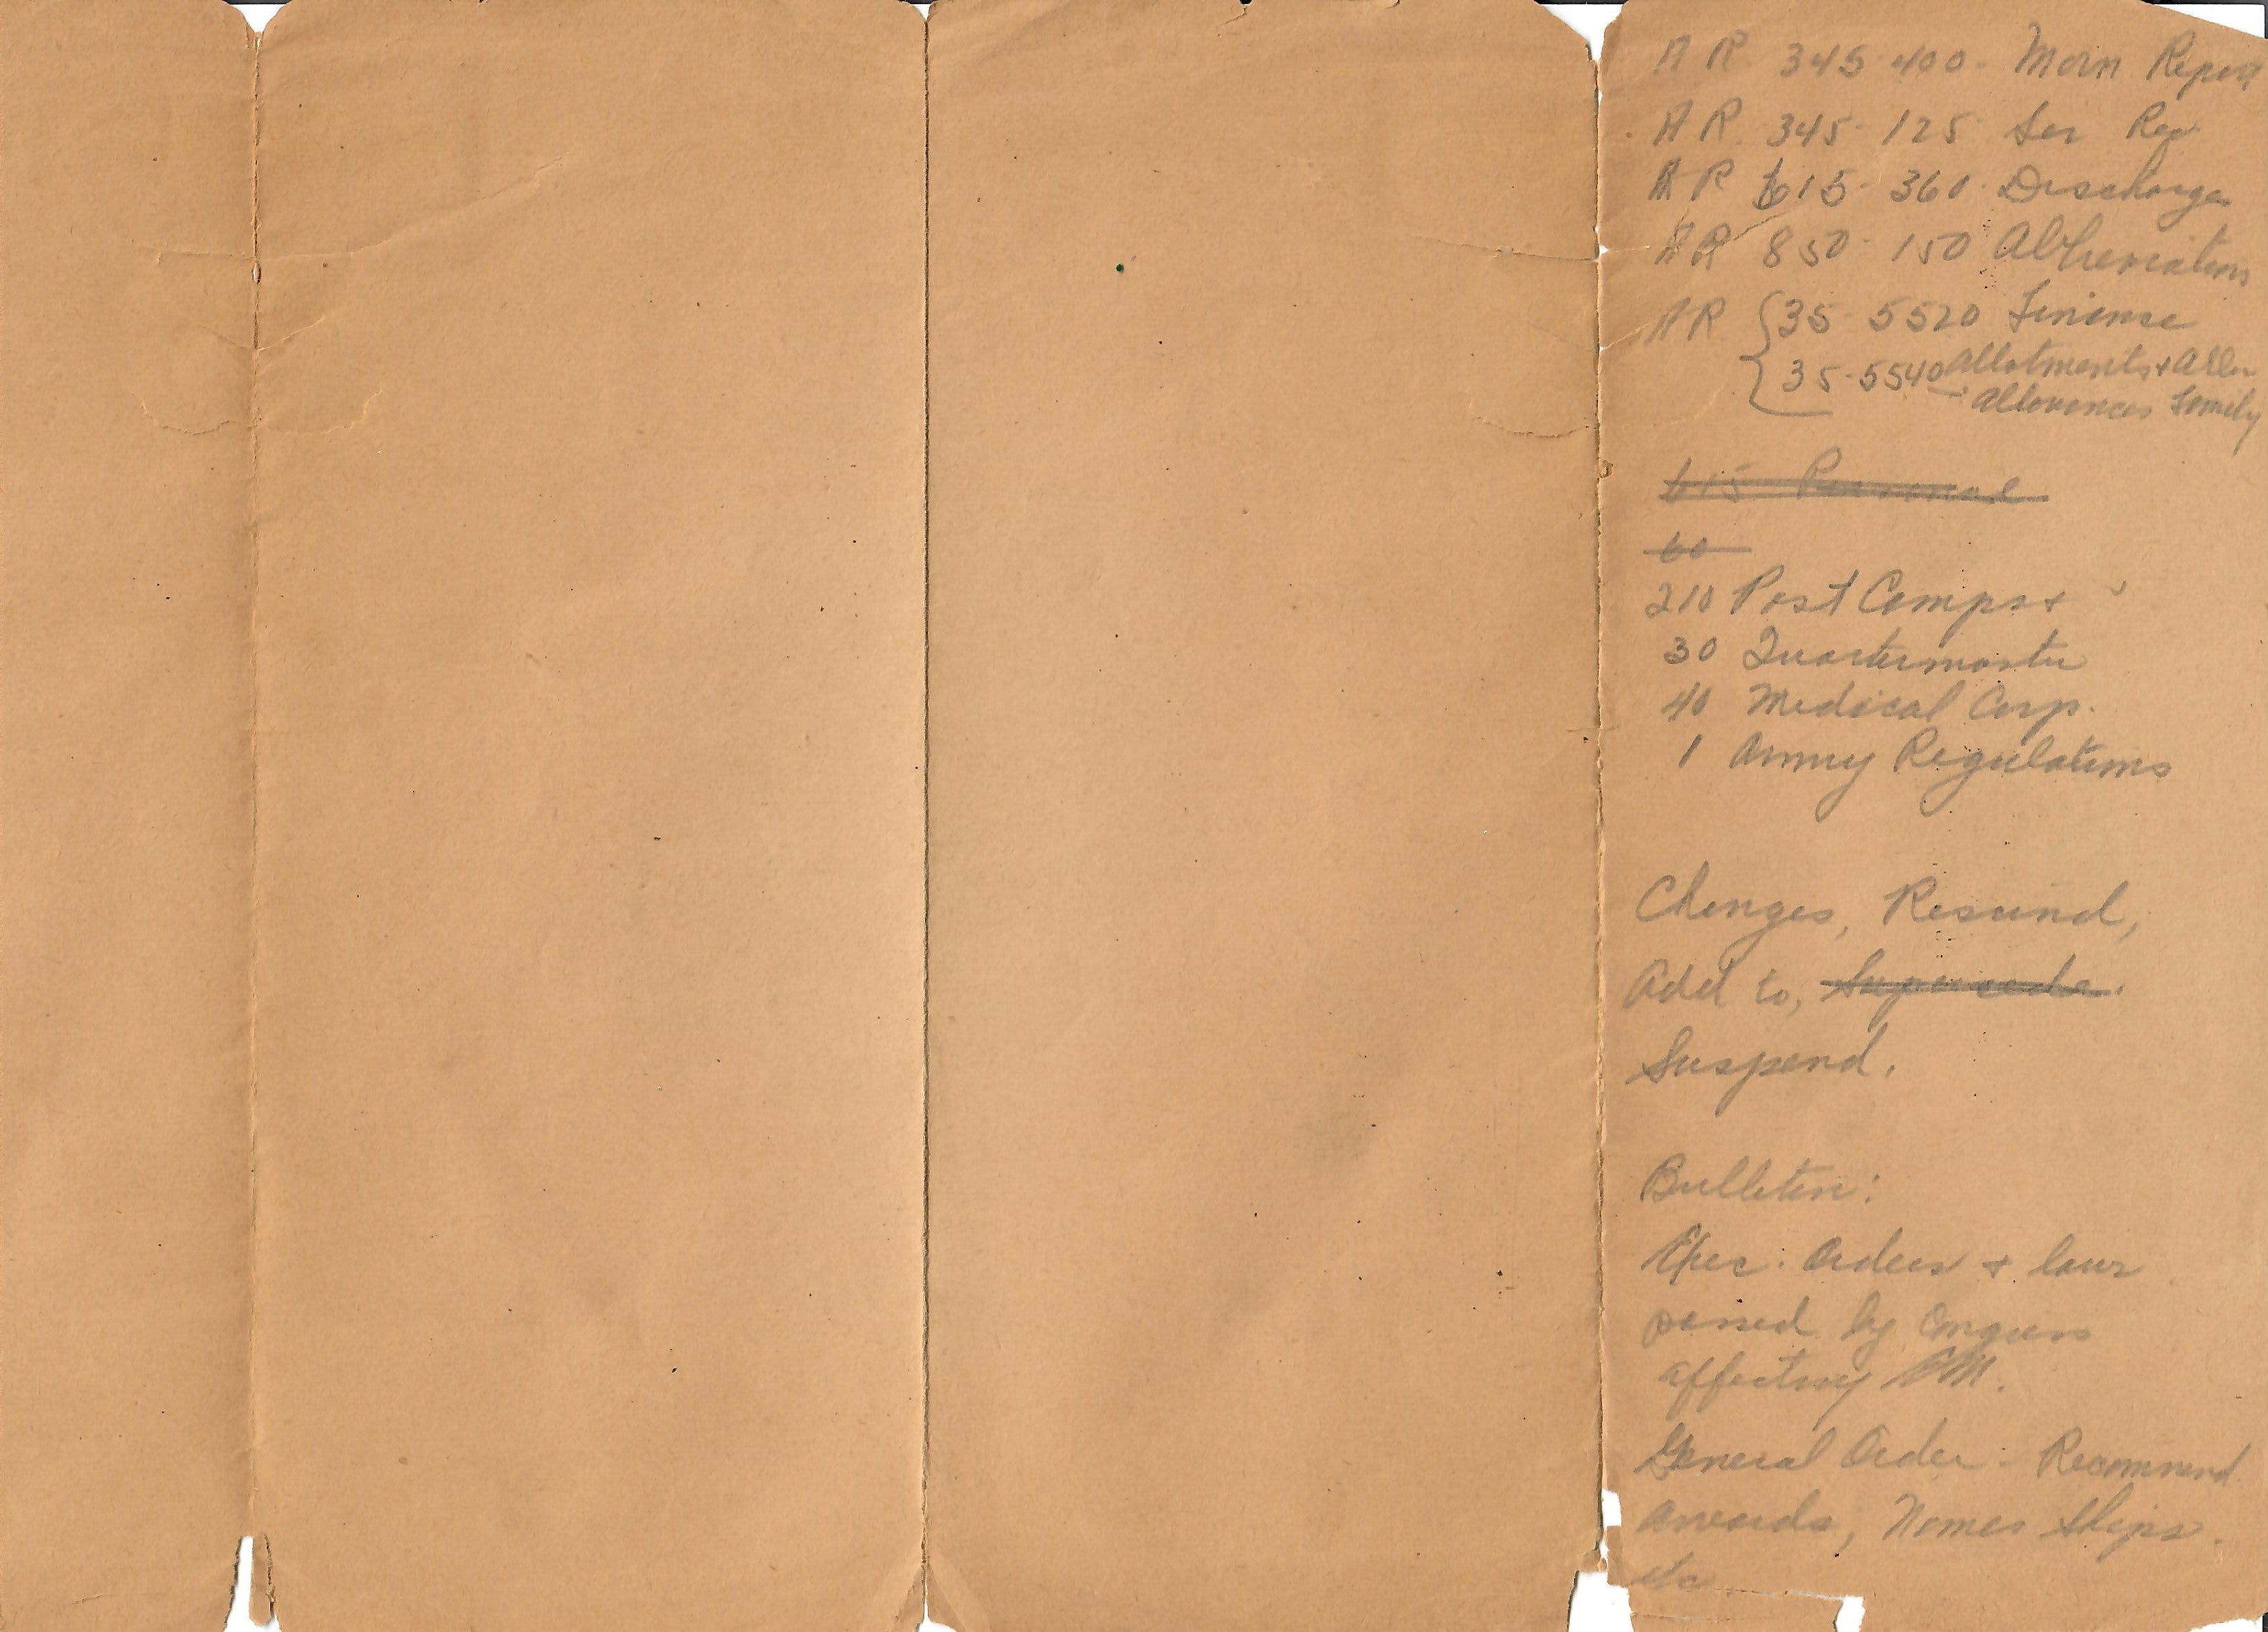 AR 345-400- Morn Report
AR 345-125 Ser Rec
AR 615-360- Discharges
AR 850-150 Abbreviations
AR {35-5520 Finance
35-5540 Allotments + Allow
Allowances Family
615 Personal
60
210 Post Camps +
30 Quartermaster
40 Medical Corp.
1 Army Regulations
Changes, Rescind,
Add to, Supercede.
Suspend.
Bulletin:
Exec. Orders + laws
passed by Congress
affecting
General Order - Recommend
awards, Names Ships.
etc